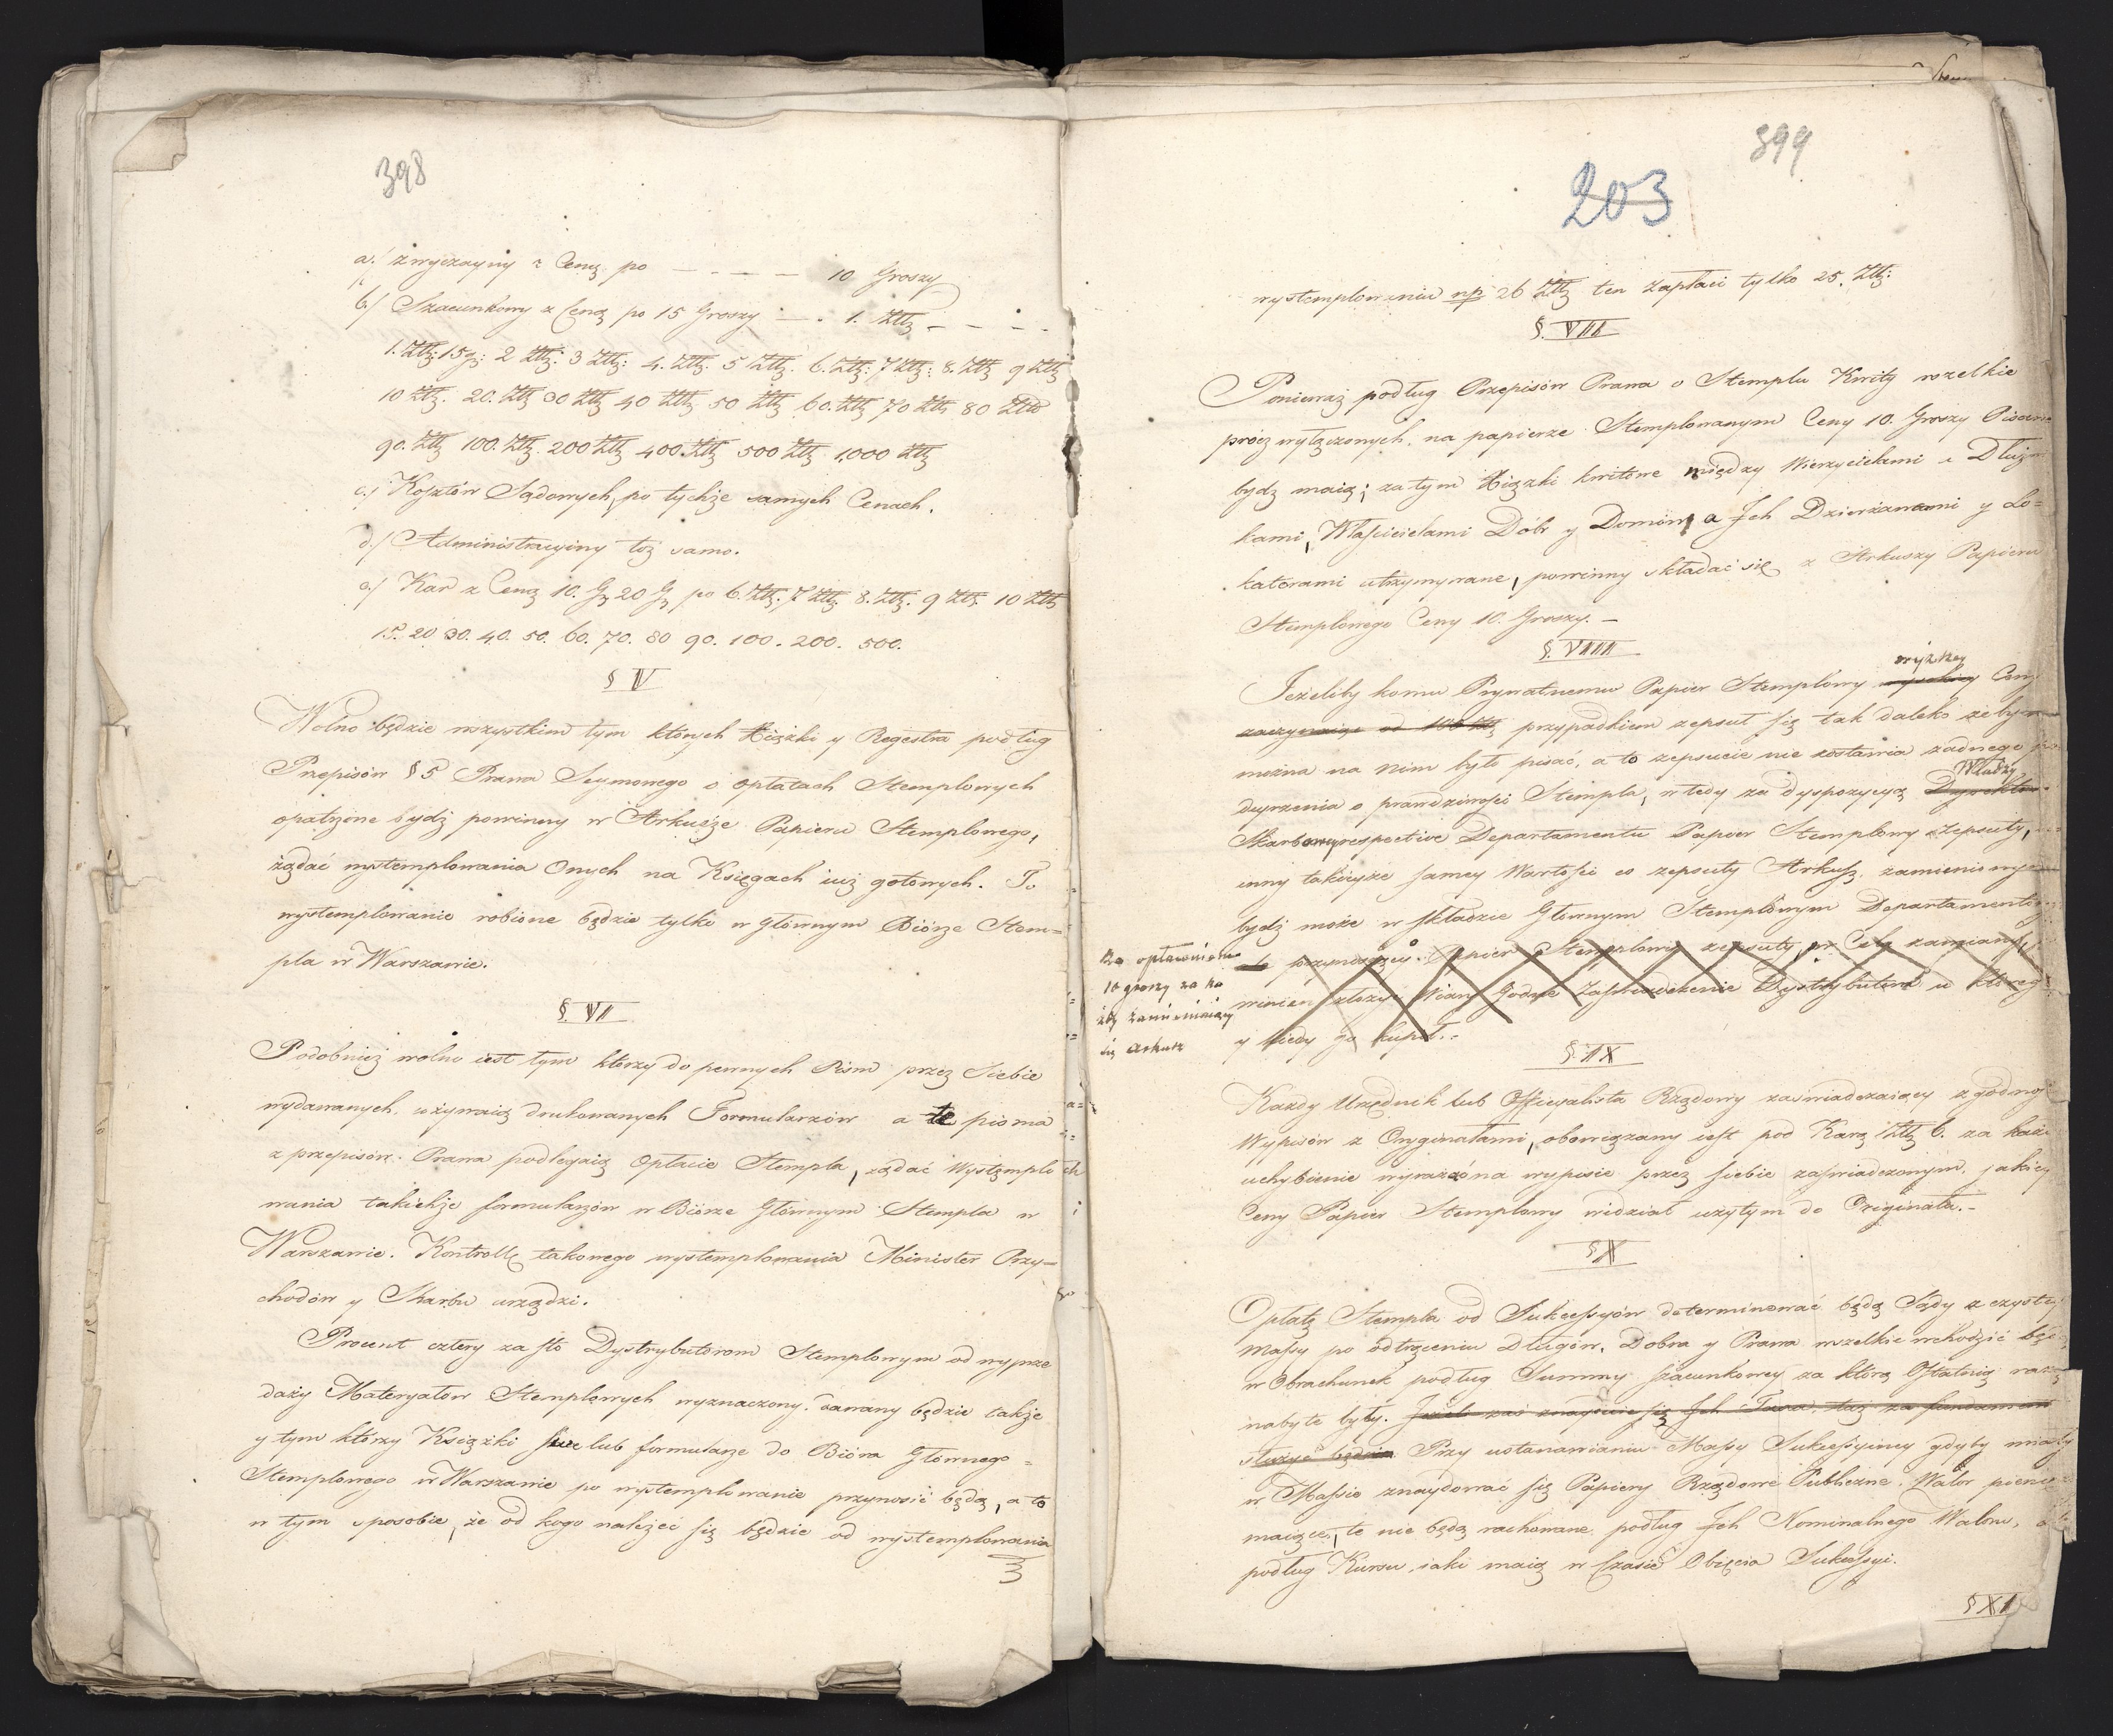 398
a./ zwyczayny z Ceną po — — — — 10 Groszy
b./ Szacunkowy z Ceną po 15 Groszy — . 1. Złłg — — — —
1. Złłg: 15 g: 2 Złłg: 3 Złłg: 4. Złłg. 5 Złłg. 6. Złłg: 7 Złłg: 8. Złłg 9 Złłg
10 Złłg. 20. Złłg 30 Złłg 40 Złłg 50 Złłg 60. Złłg 70 Złłg 80 Złłg
90. Złłg 100. Złłg. 200 Złłg 400. Złłg 500 Złłg 1,000 Złłg
c./ Kosztów Sądowych, po tychże samych Cenach.
d./ Administracyiny toż samo.
e./ Kar z Ceną 10. Gg 20 Gg po 6. Złłg. 7 Złłg. 8. Złłg. 9 Złłg. 10 Złłg
15. 20. 30. 40. 50. 60. 70. 80 90. 100. 200. 500.
§ V
Wolno będzie wszystkim tym których Xiążki y Regestra podług
Przepisów § 5 Prawa Seymowego o opłatach Stemplowych
opatrzone bydź powinny w Arkusze Papieru Stemplowego,
żądać wystemplowania Onych na Księgach iuż gotowych. To
wystemplowanie robione będzie tylko w Głównym Biórze Stem=
pla w Warszawie.
§. VI
Podobnież wolno iest tym którzy do pewnych Pism przez Siebie
wydawanych, używaią drukowanych Formularzów a te pisma
z przepisów Prawa podlegaią Opłacie Stempla, żądać Wystemplo
wania takichże formularzów w Biórze Głównym Stempla w
Warszawie. Kontrollę takowego wystemplowania Minister Przy=
chodów y Skarbu urządzi.
Procent cztery za sto Dystrybutorom Stemplowym od wyprze
daży Materyałów Stemplowych wyznaczony, dawany będzie także
y tym którzy Książki swe lub formularze do Bióra Głównego =
Stemplowego w Warszawie po wystemplowanie przynosić będą, a to
w tym sposobie, że od kogo należeć się będzie od wystemplowania
399
203
wystemplowaniu np 26 Złłg ten zapłaci tylko 25. Złłg:
§. VII
Ponieważ podług Przepisów Prawa o Stemplu Kwity wszelkie
prócz wyłączonych, na papierze Stemplowanym Ceny 10. Groszy Pisane
bydź maią; zatym Xiążki kwitowe między Wierzycielami a Dłużni
kami, Właścicielami Dóbr y Domów, a Ich Dzierżawcami y Lo=
katorami utrzymywane, powinny składać się z Arkuszy Papieru
Stemplowego Ceny 10. Groszy. —
§. VIII
wyższey
Jeżeliby komu Prywatnemu Papier Stemplowy wysokiey Ceny
zaczynaiąc od 100 Złłg przypadkiem zepsuł się tak daleko żeby
można na nim było pisać, a to zepsucie nie zostawia żadnego
Władzy
deyrzenia o prawdziwości Stempla, wtedy za dyspozycyą
Skarbowey respective Departamentu Papier Stemplowy zepsuty,
inny takieyże samey Wartości co zepsuty Arkusz, zamieniony
bydź może w składzie Głównym Stemplowym Departamentow
za opłaceniem
10 groszy za ka
żdy zamieniaiący
się arkusz
przynoszący Papier Stemplowy zepsuty w Celu zamiany,
winien złożyć Wiary Godne Zaświadczenie Dystrybutora u którego
y kiedy go kupił.
§. IX
Każdy Urzędnik lub Officyalista Rządowy zaświadczaiący zgodność
Wypisów z Oryginałami, obowiązany iest pod Karą Złłg 6. za każde
uchybienie wyrazić na wypisie przez siebie zaświadczonym, jakiey
Ceny Papier Stemplowy widział użytym do Originału. —
§ X
Opłatę Stempla od Sukcessyów determinować będą Sądy z czystey
Massy po odtrąceniu Długów. Dobra y Prawa wszelkie wchodzić będą
w Obrachunek podług Summy szacunkowey za którą Ostatnią razą
nabyte były. Jeżeli zaś znayduie się Ich Taxa, taż za fundament
służyć będzie Przy ustanawianiu Massy Sukcessyiney gdyby miały
w Massie znaydować się Papiery Rządowe Publiczne Walor pienię
maiące, te nie będą rachowane podług Ich Nominalnego Waloru,
podług Kursu iaki maią w Czasie Obięcia Sukcessyi.
§ XI